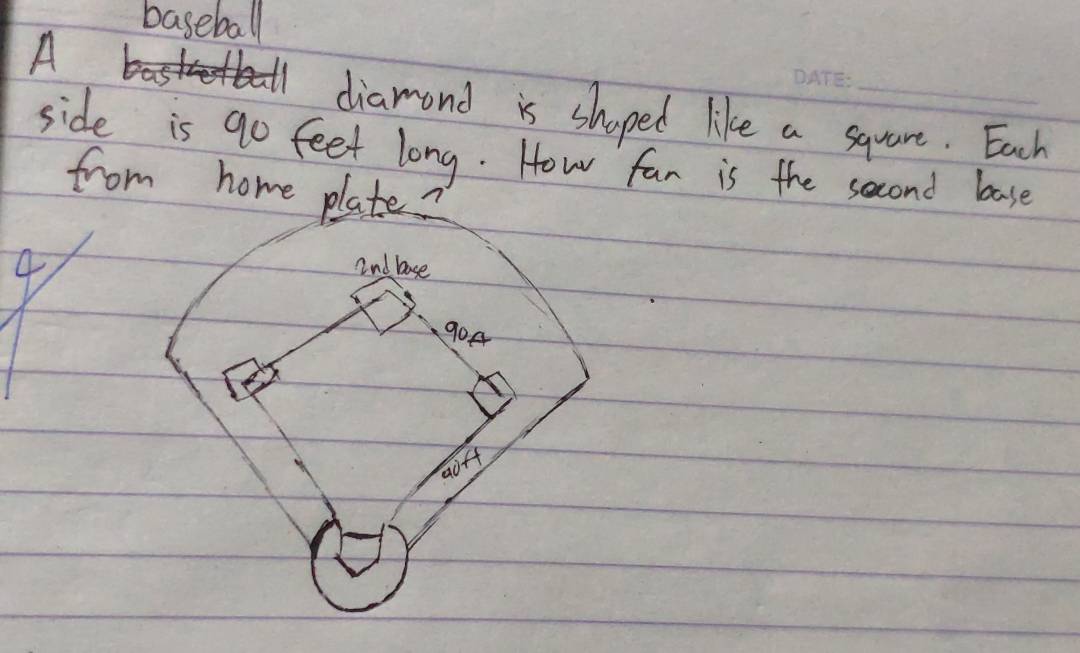 baseball
DATE:
A basketball diamond is shaped like a square. Each
side is 90 feet long. How far is the second base
from home plate?
2nd base
90ft
90ft